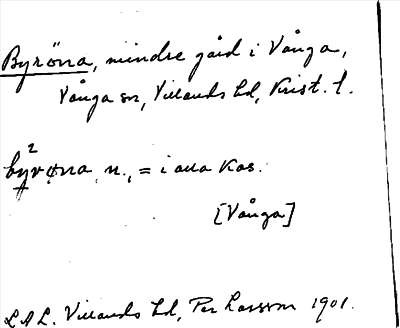 Byröna, mindre gård i Vånga,
Vånga sn, Villands hd, Krist. l.
by²røna, n., = i alla kas.
[Vånga]
L.A.L. Villands hd, Per Larsson 1901.